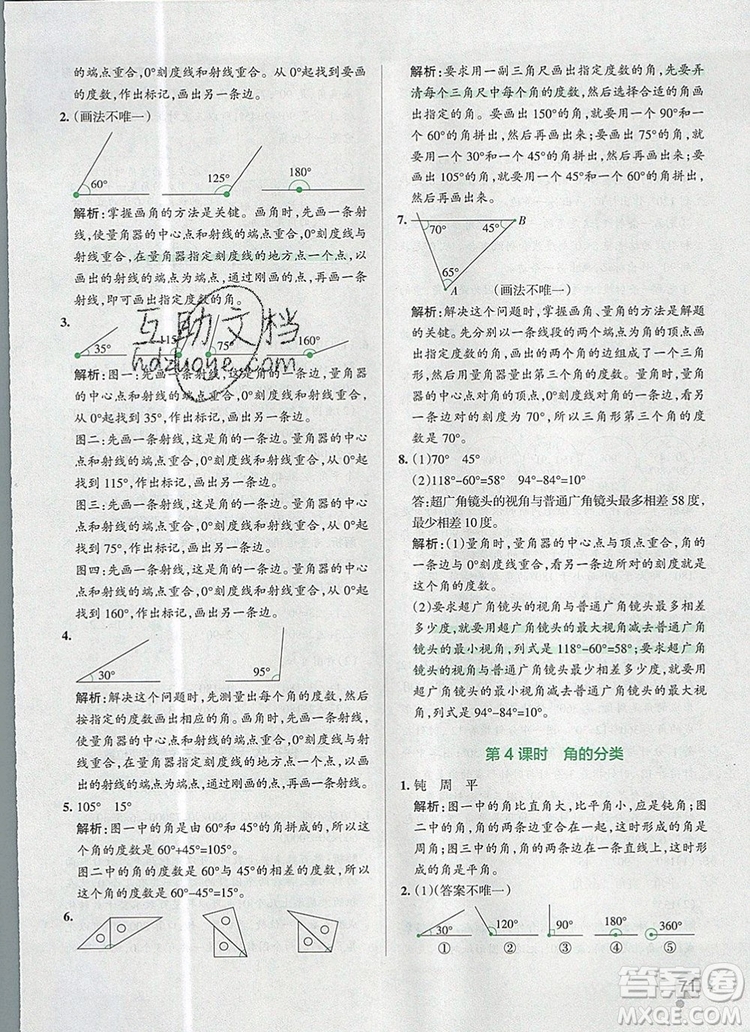 的端点重合,0°刻度线和射线重合。从0°起找到要画
的度数,作出标记,画出另一条边。
2.(画法不唯一)
60° 125° 180°
解析:掌握画角的方法是关键。画角时,先画一条射
线,使量角器的中心点和射线的端点重合,0°刻度线
和射线重合,在量角器指定刻度线的地方点一个点,
以画出的射线的端点为端点,通过刚画的点,再画一条
射线,即可画出指定度数的角。
3.
35° 115° 75° 160°
互助文档
hdzuoye.com
解析:图一:先画一条射线,这是角的一条边。量角器
的中心点和射线的端点重合,0°刻度线和射线重合,
从0°起找到35°,作出标记,画出另一条边。
图二:先画一条射线,这是角的一条边。量角器的中心
点和射线的端点重合,0°刻度线和射线重合,从0°起
找到115°,作出标记,画出另一条边。
图三:先画一条射线,这是角的一条边。量角器的中心
点和射线的端点重合,0°刻度线和射线重合,从0°起
找到75°,作出标记,画出另一条边。
图四:先画一条射线,这是角的一条边。量角器的中心
点和射线的端点重合,0°刻度线和射线重合,从0°起
找到160°,作出标记,画出另一条边。
4.
30° 95°
解析:解决这个问题时,先测量出每个角的度数,然后
按指定的度数画出相应的角。画角时,先画一条射线,
使量角器的中心点和射线的端点重合,0°刻度线和射
线重合,在量角器指定刻度线的地方点一个点,以画出
的射线的端点为端点,通过刚画的点,再画一条射线。
5. 105° 15°
解析:图一中的角是由60°和45°的角拼成的,所以这
个角的度数是60°+45°=105°。
图二中的角的度数是60°与45°的角相差的度数,所以
这个角的度数是60°-45°=15°。
6.
解析:要求用一副三角尺画出指定度数的角,先要弄
清每个三角尺中每个角的度数,然后选择合适的角画
出指定的角。要画出150°的角时,就要用一个90°和
一个60°的角拼出,然后再画出来。要画出75°的角,
就要用一个30°和一个45°的角拼出,然后再画出来。
要画出135°的角,就要用一个90°和一个45°的角拼
出,然后再画出来。
7.
70° 45° B
65°
A (画法不唯一)
解析:解决这个问题时,掌握画角、量角的方法是解题
的关键。先分别以一条线段的两个端点为顶点画出
两个角,两个角的边和画出的边组成了一个三角形,
然后用量角器量出第三个角的度数。用量角器的中
心点对角的顶点,0°刻度线对角的一条边,角的另一
条边对的刻度为70°,所以三角形第三个角的度数
就是70°。
8. (1)70° 45°
(2)118°-60°=58° 94°-84°=10°
答:超广角镜头的视角与普通广角镜头最多相差58度,
最少相差10度。
解析:(1)量角时,量角器的中心点与顶点重合,量角
器的0°刻度线与一条边重合,看另一条边所对的度数
是这个角的度数。
(2)要求超广角镜头的视角与普通广角镜头最多相差
多少度,就要用超广角镜头的最大视角减去普通广角
镜头的最小视角,列式是118°-60°=58°;要求超广角
镜头的视角与普通广角镜头最少相差多少度,就要用
超广角镜头的最小视角减去普通广角镜头的最大视
角,列式是94°-84°=10°。
第4课时 角的分类
1. 钝 周 平
解析:图一中的角比直角大,比平角小,应是钝角;图
二中的角,角的两条边重叠在一起,这时形成的角是
周角;图三中的角,角的两条边在一条直线上,这时形
成的角是平角。
2. (1)(答案不唯一)
30° 120° 90° 180° 360°
① ② ③ ④ ⑤
71
答案圈
MXQE.COM